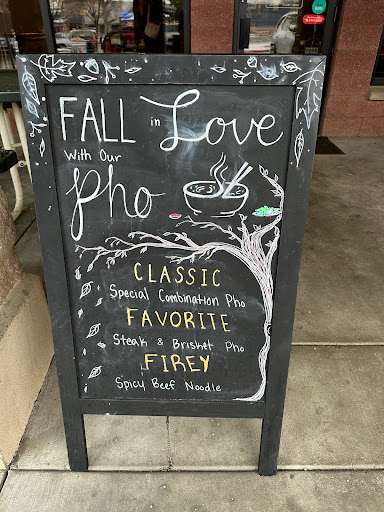 FALL in Love
With Our
Pho
CLASSIC
Special Combination Pho
FAVORITE
Steak & Brisket Pho
FIREY
Spicy Beef Noodle